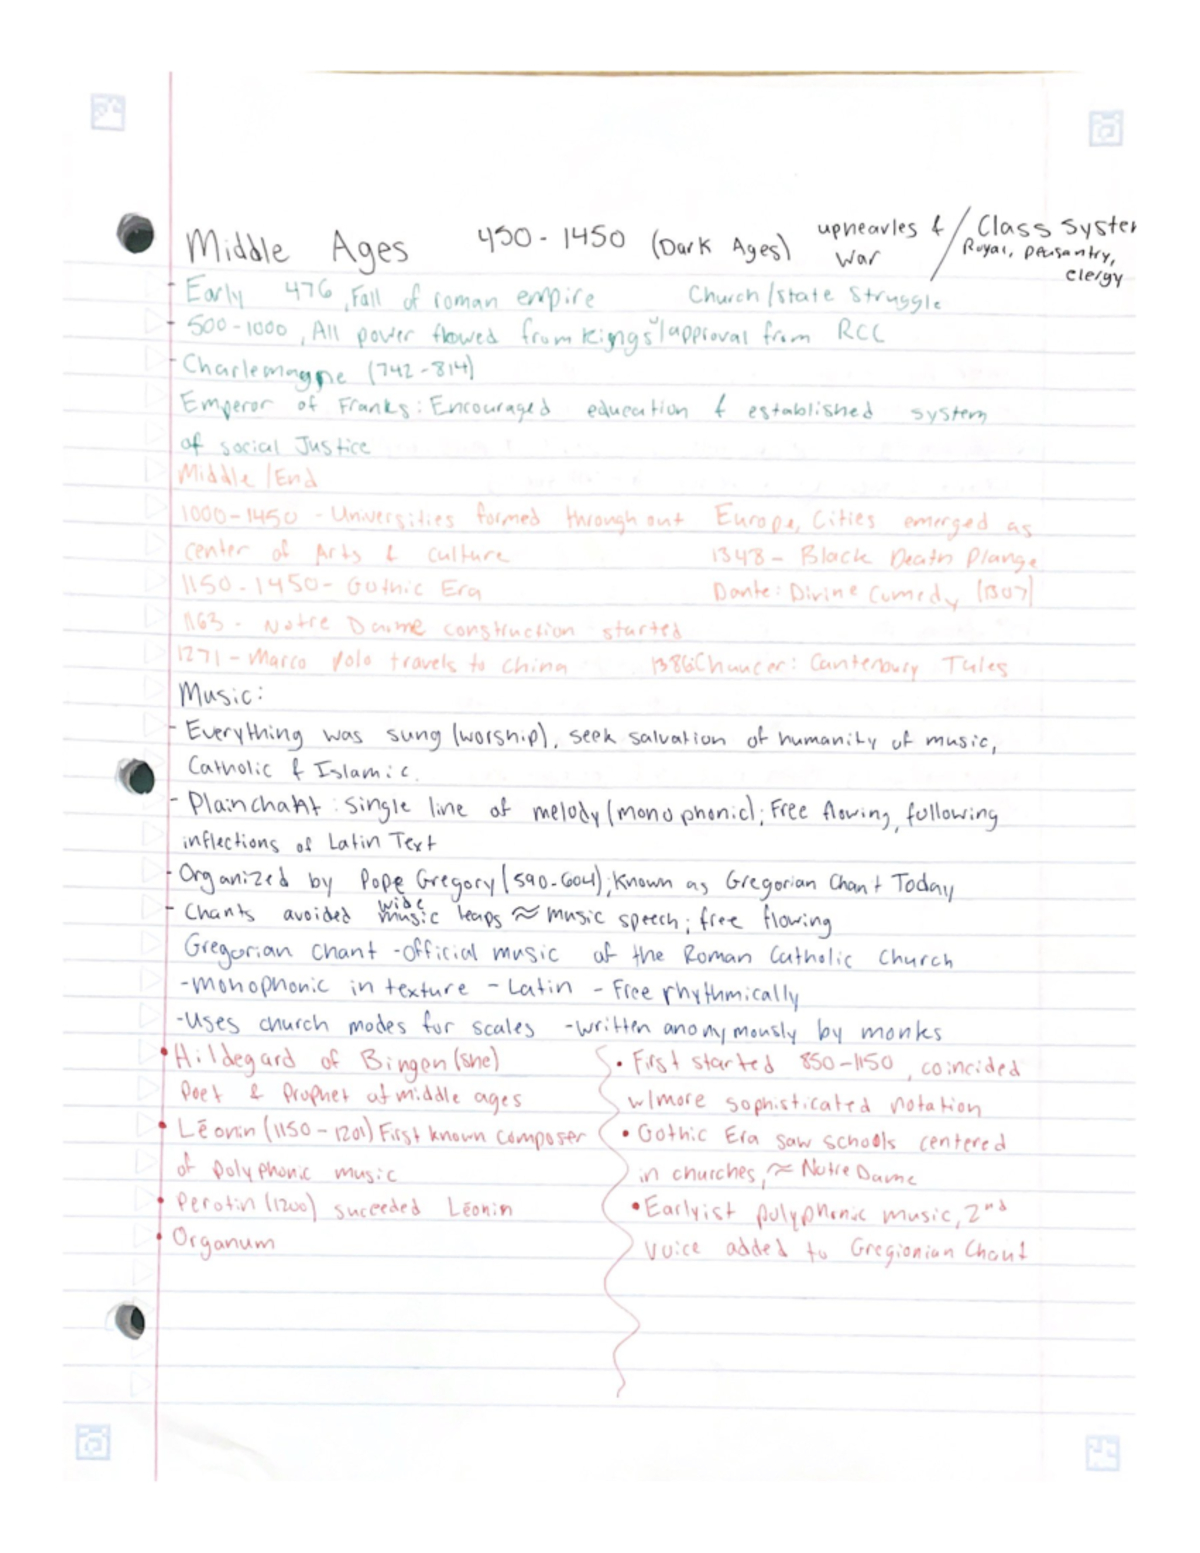 Middle Ages 450-1450 (Dark Ages) upheavles & war / Class System
Royal, peasantry, clergy
- Early 476, Fall of roman empire Church/State Struggle
- 500-1000, All power flowed from kings w/approval from RCC
- Charlemagne (742-814)
Emperor of Franks: Encouraged education & established system
of social Justice
Middle/End
1000-1450 - Universities formed throughout Europe, Cities emerged as
center of Arts & culture 1348 - Black Death Plange
1150-1450- Gothic Era Dante: Divine Comedy (1307)
1163 - Notre Daime construction started
1271 - Marco Polo travels to china 1386 Chaucer: Canterbury Tales
Music:
- Everything was sung (worship), seek salvation of humanity of music,
Catholic & Islamic.
- Plainchant: single line of melody (monophonic); Free flowing, following
inflections of Latin Text
- Organized by Pope Gregory (590-604); Known as Gregorian Chant Today
- Chants avoided wide music leaps ≈ music speech; free flowing
Gregorian chant - official music of the Roman Catholic Church
- monophonic in texture - Latin - Free rhythmically
- Uses church modes for scales - written anonymously by monks
• Hildegard of Bingen (she)
Poet & Prophet of middle ages
• Lēonin (1150-1201) First known composer
of polyphonic music
• Perotin (1200) succeeded Lēonin
• Organum
• First started 850-1150, coincided
w/more sophisticated notation
• Gothic Era saw schools centered
in churches, ≈ Notre Dame
• Earlyist polyphonic music, 2nd
voice added to Gregionian Chant